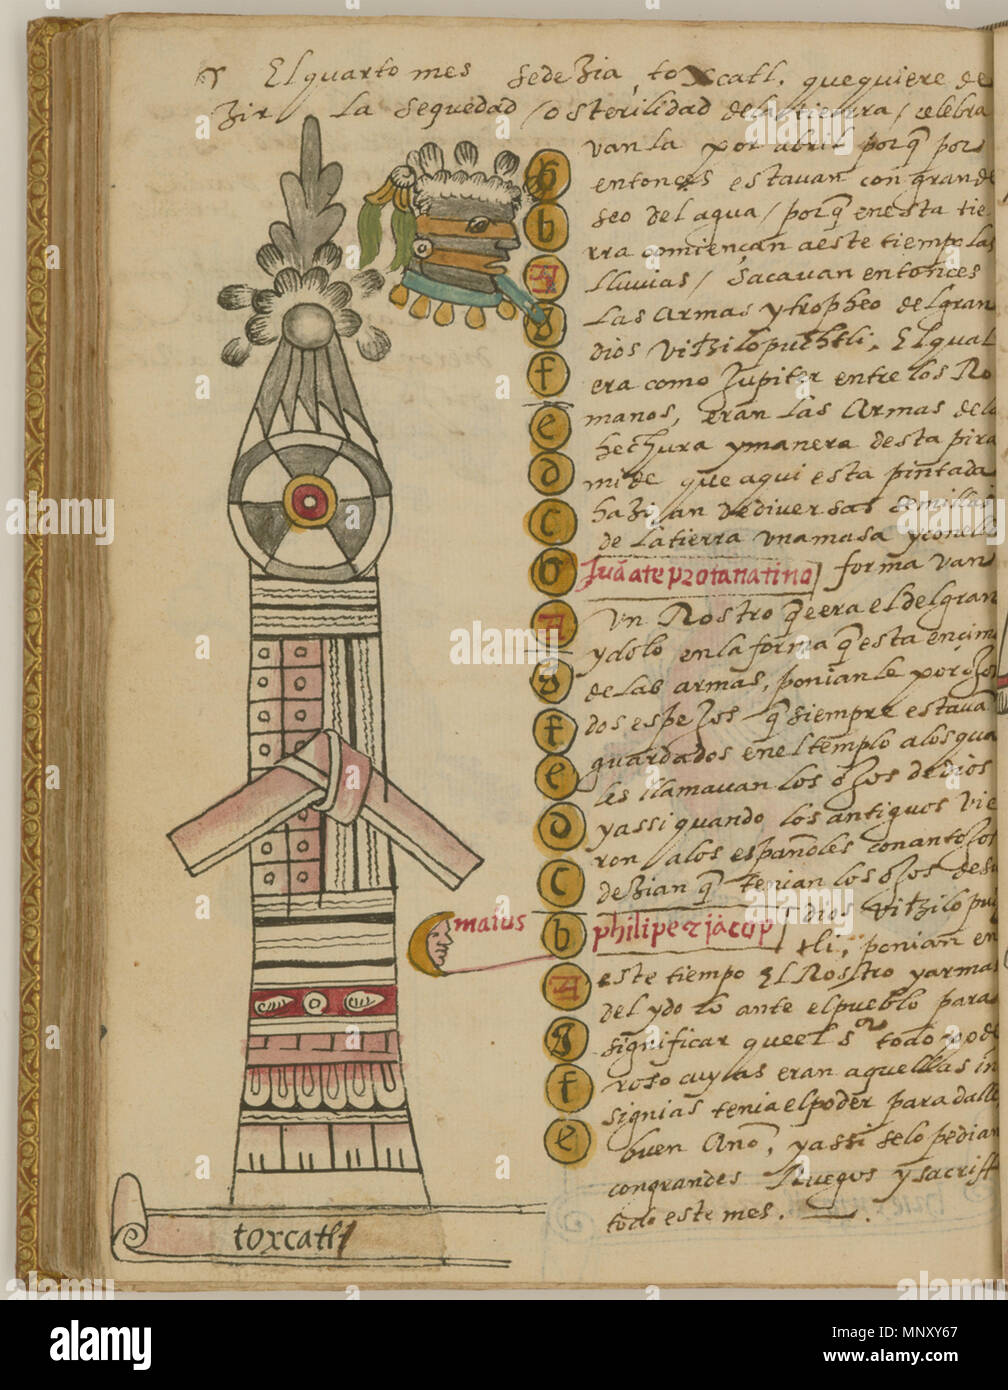 El quarto mes sedezia, toxcatl. que quiere de
zir la sequedad / o sterilidad dela tierra / celebra
van la por abril porq̃ por
entonces estavan con grande
seo del agua / porq̃ enesta tie
rra comiençan aeste tiempo las
lluvias / Sacavan entonces
Las Armas y tropheo del gran
dios Vitzilopuchtli, El qual
era como Jupiter entre los Ro
manos, eran las Armas dela
hechura ymanera desta pira
mide que aqui esta pintada
hazian dediversas semillas
de la tierra una masa y conella
Juā ate portā latinā forma van
Un Rostro q̃ era el del gran
ydolo en la forma q̃ esta encima
de las armas, ponian le por ojos
dos espejos q̃ siempre estavā
guardados en el templo alos qua
les llamavan los ojos de dios
y assi quando los antiguos vie
ron alos españoles con antojos
dezian q̃ tenian los ojos desu
maius
philipe z jacop dios Vitzilopuch
tli, ponian en
este tiempo El Rostro y armas
del ydolo ante el pueblo para
significar que el s.or todo pode
roso cuyas eran aquellas in
signias tenia el poder para dalles
buen Año, y assi se lo pedian
con grandes Ruegos y sacriff
todo este mes.
h
b
A
g
f
e
d
c
b
A
g
f
e
d
c
b
A
g
f
e
toxcatl
alamy
alamy
Image ID: MNXY67
www.alamy.com